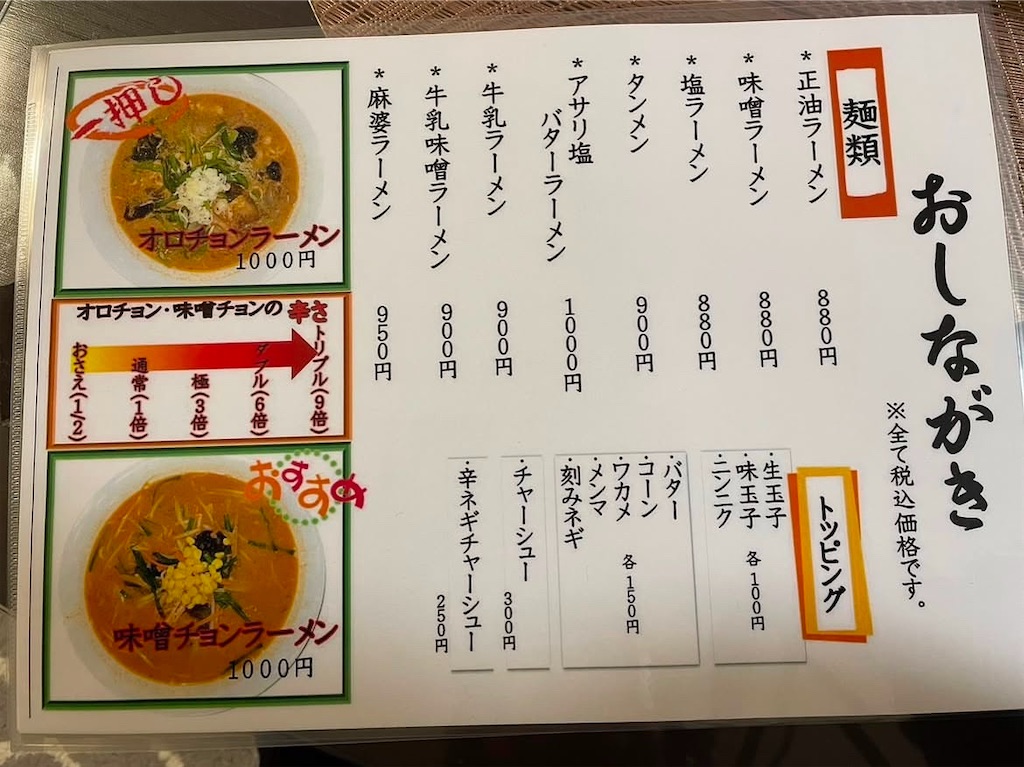 おしながき
※全て税込価格です。
麺類
*正油ラーメン 880円
*味噌ラーメン 880円
*塩ラーメン 880円
*タンメン 900円
*アサリ塩
バターラーメン 1000円
*牛乳ラーメン 900円
*牛乳味噌ラーメン 900円
*麻婆ラーメン 950円
トッピング
・生玉子
・味玉子
・ニンニク
各100円
・バター
・コーン
・ワカメ
・メンマ
・刻みネギ
各150円
・チャーシュー
300円
・辛ネギチャーシュー
250円
一押し
オロチョンラーメン
1000円
オロチョン・味噌チョンの辛さ
おさえ(1/2)
通常(1倍)
極(3倍)
ダブル(6倍)
トリプル(9倍)
おすすめ
味噌チョンラーメン
1000円